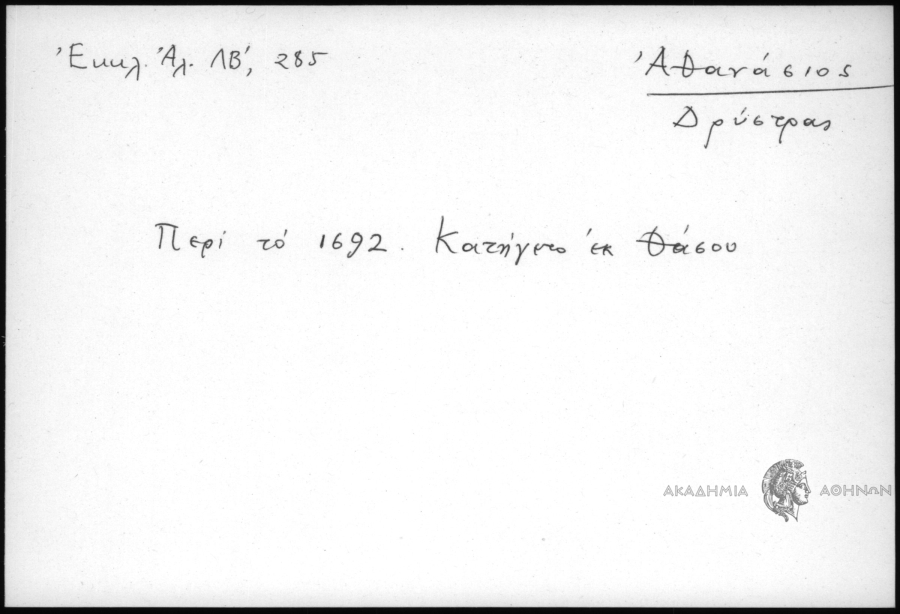 Ἐκκλ. Ἀλ. ΛΒ', 285
Ἀθανάσιος
Δρύστρας
Περί τό 1692. Κατήγετο ἐκ Θάσου
ΑΚΑΔΗΜΙΑ ΑΘΗΝΩΝ